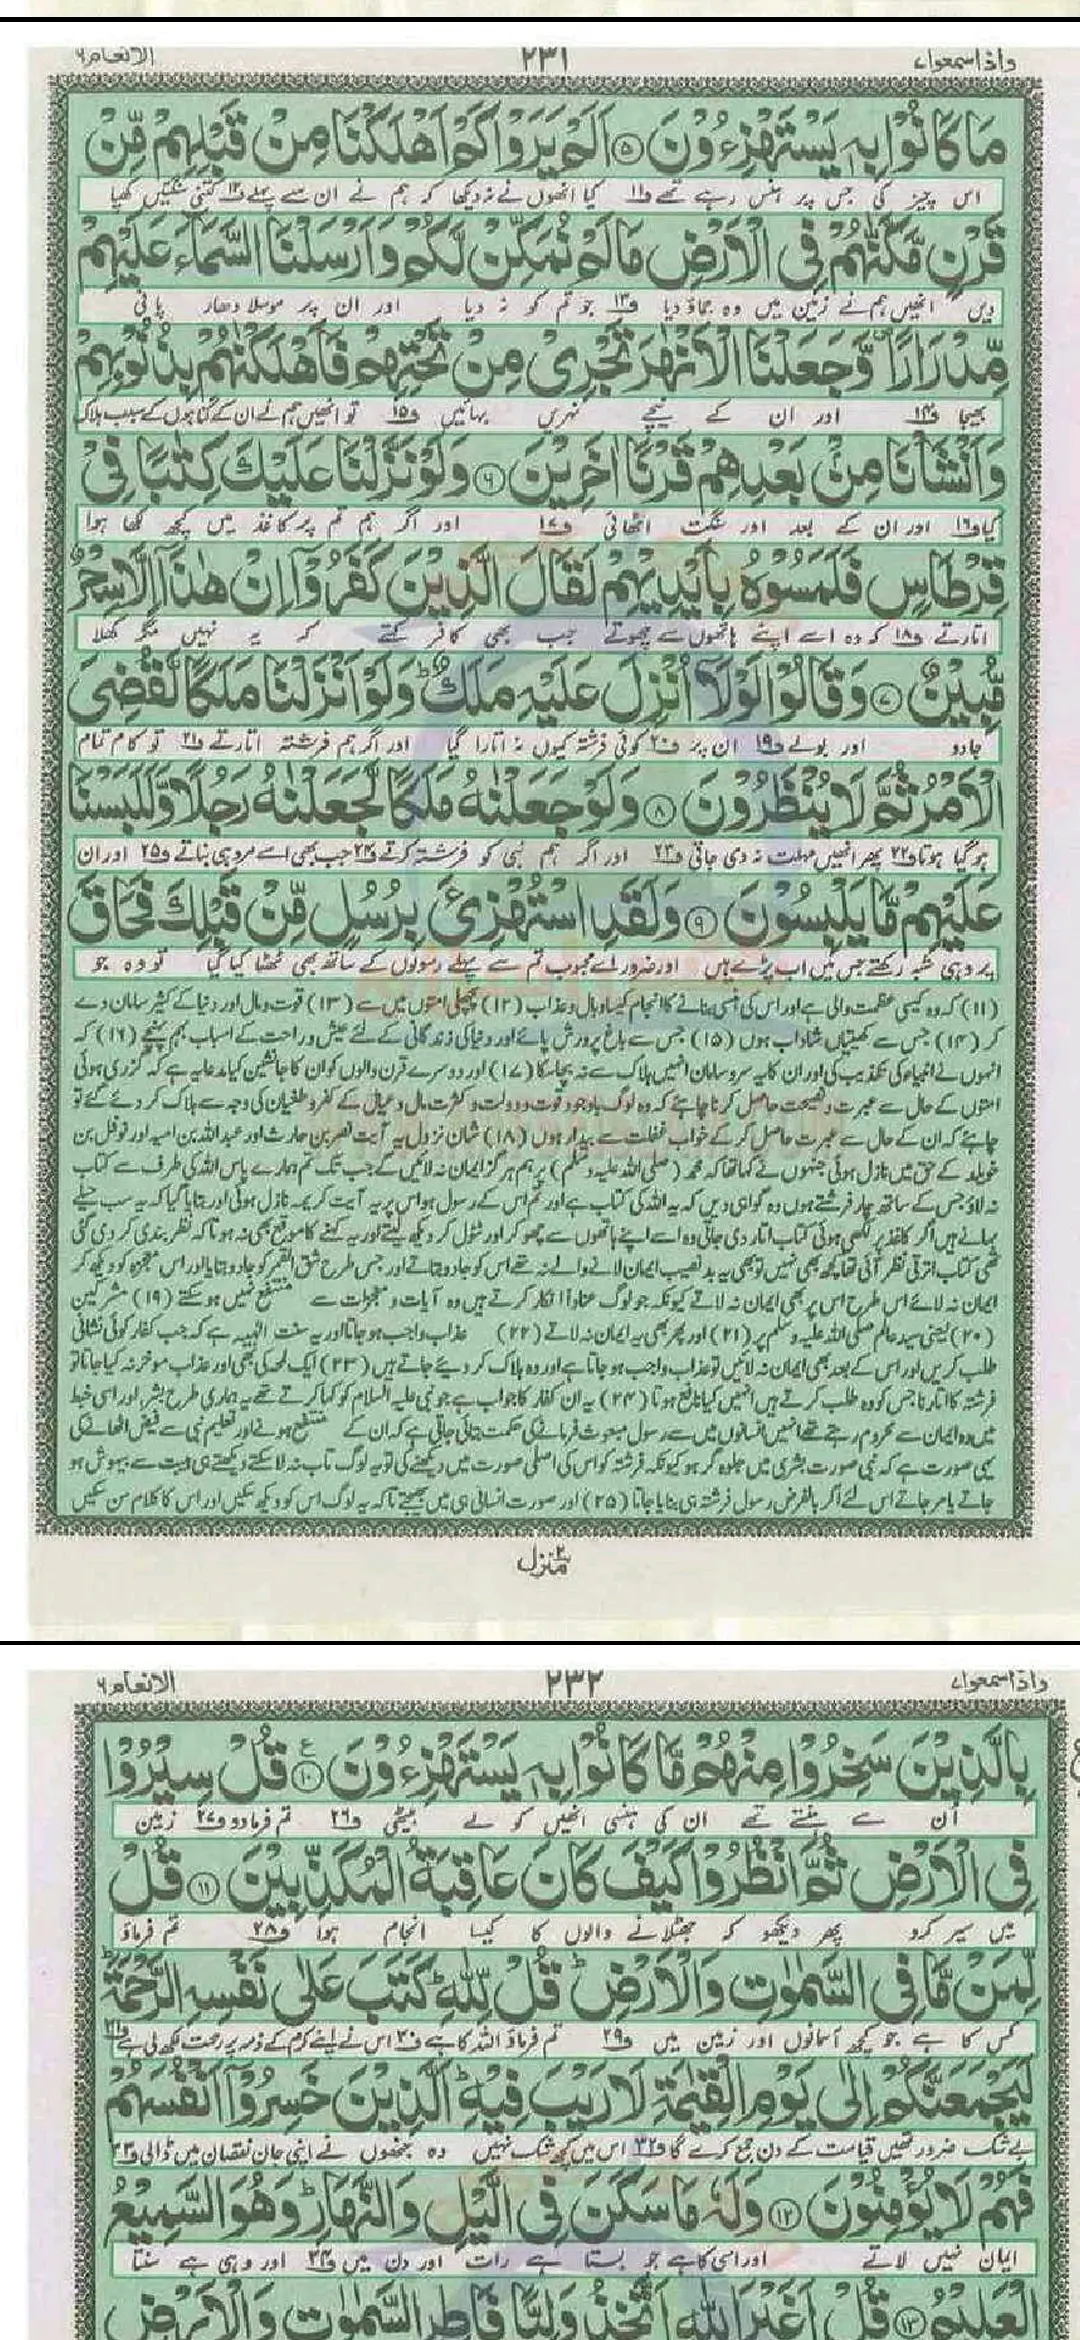 واذاسمعوا۷
۲۳۱
الانعام۶
مَا كَانُوْا بِهٖ يَسْتَهْزِءُوْنَ ۝۵ اَلَمْ يَرَوْا كَمْ اَهْلَكْنَا مِنْ قَبْلِهِمْ مِّنْ
اس چیز کی جس پر ہنس رہے تھے ف۱۱ کیا انھوں نے نہ دیکھا کہ ہم نے ان سے پہلے ف۱۲ کتنی سنگتیں کھپا
قَرْنٍ مَّكَّنّٰهُمْ فِى الْاَرْضِ مَا لَمْ نُمَكِّنْ لَّكُمْ وَاَرْسَلْنَا السَّمَآءَ عَلَيْهِمْ
دیں انھیں ہم نے زمین میں وہ جماؤ دیا ف۱۳ جو تم کو نہ دیا اور ان پر موسلا دھار پانی
مِّدْرَارًا وَّجَعَلْنَا الْاَنْهٰرَ تَجْرِىْ مِنْ تَحْتِهِمْ فَاَهْلَكْنٰهُمْ بِذُنُوْبِهِمْ
بھیجا ف۱۴ اور ان کے نیچے نہریں بہائیں ف۱۵ تو انھیں ہم نے ان کے گناہوں کے سبب ہلاک
وَاَنْشَاْنَا مِنْۢ بَعْدِهِمْ قَرْنًا اٰخَرِيْنَ ۝۶ وَلَوْ نَزَّلْنَا عَلَيْكَ كِتٰبًا فِىْ
کیا ف۱۶ اور ان کے بعد اور سنگت اٹھائی ف۱۷ اور اگر ہم تم پر کاغذ میں کچھ لکھا ہوا
قِرْطَاسٍ فَلَمَسُوْهُ بِاَيْدِيْهِمْ لَقَالَ الَّذِيْنَ كَفَرُوْٓا اِنْ هٰذَآ اِلَّا سِحْرٌ
اتارتے ف۱۸ کہ وہ اسے اپنے ہاتھوں سے چھوتے جب بھی کافر کہتے کہ یہ نہیں مگر کھلا
مُّبِيْنٌ ۝۷ وَقَالُوْا لَوْلَآ اُنْزِلَ عَلَيْهِ مَلَكٌ ؕ وَلَوْ اَنْزَلْنَا مَلَكًا لَّقُضِىَ
جادو اور بولے ف۱۹ ان پر ف۲۰ کوئی فرشتہ کیوں نہ اتارا گیا اور اگر ہم فرشتہ اتارتے ف۲۱ تو کام تمام
الْاَمْرُ ثُمَّ لَا يُنْظَرُوْنَ ۝۸ وَلَوْ جَعَلْنٰهُ مَلَكًا لَّجَعَلْنٰهُ رَجُلًا وَّلَلَبَسْنَا
ہو گیا ہوتا ف۲۲ پھر انھیں مہلت نہ دی جاتی ف۲۳ اور اگر ہم نبی کو فرشتہ کرتے ف۲۴ جب بھی اسے مرد ہی بناتے ف۲۵ اور ان
عَلَيْهِمْ مَّا يَلْبِسُوْنَ ۝۹ وَلَقَدِ اسْتُهْزِئَ بِرُسُلٍ مِّنْ قَبْلِكَ فَحَاقَ
پر وہی شبہ رکھتے جس میں اب پڑے ہیں اور ضرور اے محبوب تم سے پہلے رسولوں کے ساتھ بھی ٹھٹھا کیا گیا تو وہ جو
(۱۱) کہ وہ کیسی عظمت والی ہے اور اس کی ہنسی بنانے کا انجام کیسا وبال و عذاب (۱۲) پچھلی امتوں میں سے (۱۳) قوت و مال اور دنیا کے کثیر سامان دے
کر (۱۴) جس سے کھیتیاں شاداب ہوں (۱۵) جس سے باغ پرورش پائے اور دنیا کی زندگانی کے لئے عیش و راحت کے اسباب بہم پہنچے (۱۶) کہ
انہوں نے انبیاء کی تکذیب کی اور ان کا یہ سرو سامان انہیں ہلاک سے نہ بچا سکا (۱۷) اور دوسرے قرن والوں کو ان کا جانشین کیا مدعا یہ ہے کہ گزری ہوئی
امتوں کے حال سے عبرت و نصیحت حاصل کرنا چاہئے کہ وہ لوگ باوجود قوت و دولت و کثرت مال و عیال کے کفر و طغیان کی وجہ سے ہلاک کر دئے گئے تو
چاہئے کہ ان کے حال سے عبرت حاصل کر کے خواب غفلت سے بیدار ہوں (۱۸) شان نزول یہ آیت نضر بن حارث اور عبداللہ بن امیہ اور نوفل بن
خویلد کے حق میں نازل ہوئی جنہوں نے کہا تھا کہ محمد (صلی اللہ علیہ وسلم) پر ہم ہرگز ایمان نہ لائیں گے جب تک تم ہمارے پاس اللہ کی طرف سے کتاب
نہ لاؤ جس کے ساتھ چار فرشتے ہوں وہ گواہی دیں کہ یہ اللہ کی کتاب ہے اور تم اس کے رسول ہو اس پر یہ آیت کریمہ نازل ہوئی اور بتایا گیا کہ یہ سب حیلے
بہانے ہیں اگر کاغذ پر لکھی ہوئی کتاب اتار دی جاتی وہ اسے اپنے ہاتھوں سے چھو کر اور ٹٹول کر دیکھ لیتے اور یہ کہنے کا موقع بھی نہ ہوتا کہ نظر بندی کر دی گئی
تھی کتاب اترتی نظر آئی تھا کچھ بھی نہیں تو بھی یہ بدنصیب ایمان لانے والے نہ تھے اس کو جادو بتاتے اور جس طرح شق القمر کو جادو بتایا اور اس معجزہ کو دیکھ کر
ایمان نہ لائے اس طرح اس پر بھی ایمان نہ لاتے کیونکہ جو لوگ عناداً انکار کرتے ہیں وہ آیات و معجزات سے منتفع نہیں ہو سکتے (۱۹) مشرکین
(۲۰) یعنی سید عالم صلی اللہ علیہ وسلم پر (۲۱) اور پھر بھی یہ ایمان نہ لاتے (۲۲) عذاب واجب ہو جاتا اور یہ سنت الٰہیہ ہے کہ جب کفار کوئی نشانی
طلب کریں اور اس کے بعد بھی ایمان نہ لائیں تو عذاب واجب ہو جاتا ہے اور وہ ہلاک کر دیئے جاتے ہیں (۲۳) ایک لمحہ کی بھی اور عذاب موخر نہ کیا جاتا تو
فرشتہ کا اتارنا جس کو وہ طلب کرتے ہیں انہیں کیا نافع ہوتا (۲۴) یہ ان کفار کا جواب ہے جو نبی علیہ السلام کو کہا کرتے تھے یہ ہماری طرح بشر ہیں اور اسی خبط
میں وہ ایمان سے محروم رہتے تھے انہیں انسانوں میں سے رسول مبعوث فرمانے کی حکمت بتائی جاتی ہے کہ ان کے منتفع ہونے اور تعلیم نبی سے فیض اٹھانے کی
یہی صورت ہے کہ نبی صورت بشری میں جلوہ گر ہو کیونکہ فرشتہ کو اس کی اصلی صورت میں دیکھنے کی تو یہ لوگ تاب نہ لا سکتے دیکھتے ہی ہیبت سے بیہوش ہو
جاتے یا مر جاتے اس لئے اگر بالفرض رسول فرشتہ ہی بنایا جاتا (۲۵) اور صورت انسانی ہی میں بھیجتے تاکہ یہ لوگ اس کو دیکھ سکیں اور اس کا کلام سن سکیں
منزل۲
واذاسمعوا۷
۲۳۲
الانعام۶
بِالَّذِيْنَ سَخِرُوْا مِنْهُمْ مَّا كَانُوْا بِهٖ يَسْتَهْزِءُوْنَ ۝۱۰ ع قُلْ سِيْرُوْا
ان سے ہنستے تھے ان کی ہنسی انھیں کو لے بیٹھی ف۲۶ تم فرما دو ف۲۷ زمین
فِى الْاَرْضِ ثُمَّ انْظُرُوْا كَيْفَ كَانَ عَاقِبَةُ الْمُكَذِّبِيْنَ ۝۱۱ قُلْ
میں سیر کرو پھر دیکھو کہ جھٹلانے والوں کا کیسا انجام ہوا ف۲۸ تم فرماؤ
لِّمَنْ مَّا فِى السَّمٰوٰتِ وَالْاَرْضِ ؕ قُلْ لِّلّٰهِ ؕ كَتَبَ عَلٰى نَفْسِهِ الرَّحْمَةَ ؕ
کس کا ہے جو کچھ آسمانوں اور زمین میں ف۲۹ تم فرماؤ اللہ کا ہے ف۳۰ اس نے اپنے کرم کے ذمہ پر رحمت لکھ لی ہے ف۳۱
لَيَجْمَعَنَّكُمْ اِلٰى يَوْمِ الْقِيٰمَةِ لَا رَيْبَ فِيْهِ ؕ اَلَّذِيْنَ خَسِرُوْٓا اَنْفُسَهُمْ
بے شک ضرور تمھیں قیامت کے دن جمع کرے گا ف۳۲ اس میں کچھ شک نہیں وہ جنھوں نے اپنی جان نقصان میں ڈالی ف۳۳
فَهُمْ لَا يُؤْمِنُوْنَ ۝۱۲ وَلَهٗ مَا سَكَنَ فِى الَّيْلِ وَالنَّهَارِ ؕ وَهُوَ السَّمِيْعُ
ایمان نہیں لاتے اور اسی کا ہے جو بستا ہے رات اور دن میں ف۳۴ اور وہی ہے سنتا
الْعَلِيْمُ ۝۱۳ قُلْ اَغَيْرَ اللّٰهِ اَتَّخِذُ وَلِيًّا فَاطِرِ السَّمٰوٰتِ وَالْاَرْضِ